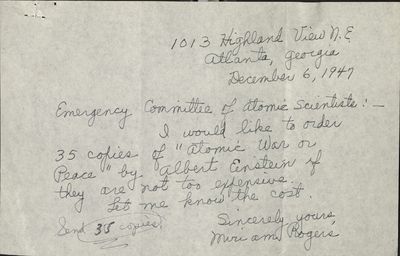 1013 Highland View N.E
Atlanta, Georgia
December 6, 1947
Emergency Committee of Atomic Scientists: —
I would like to order
35 copies of "Atomic War or
Peace" by Albert Einstein if
they are not too expensive.
Let me know the cost.
Sincerely yours,
Miriam Rogers
Send 35 copies